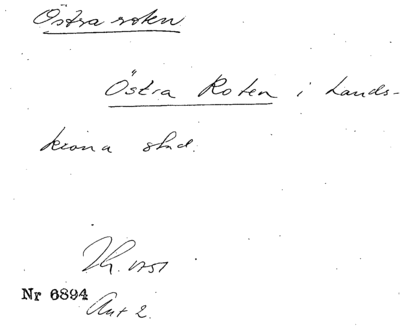 Östra roten
Östra Roten i Lands-
krona stad.
Nr 6894
Ant 2.